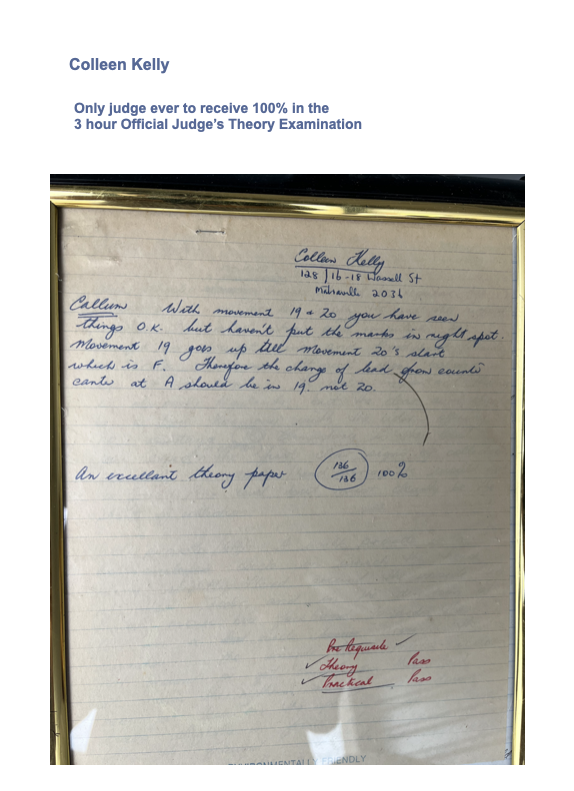 Colleen Kelly
Only judge ever to receive 100% in the
3 hour Official Judge's Theory Examination
Colleen Kelly
128 / 16-18 Wassell St
Matraville 2036
With movement 19 & 20 you have seen
things O.K. but haven't put the marks in right spot.
Movement 19 goes up till movement 20's start
which is F. Therefore the change of lead from counter
canter at A should be in 19. not 20.
An excellant theory paper 136/136 100%
Pre Requisite ✓
✓ Theory Pass
✓ Practical Pass
ENVIRONMENTALLY FRIENDLY